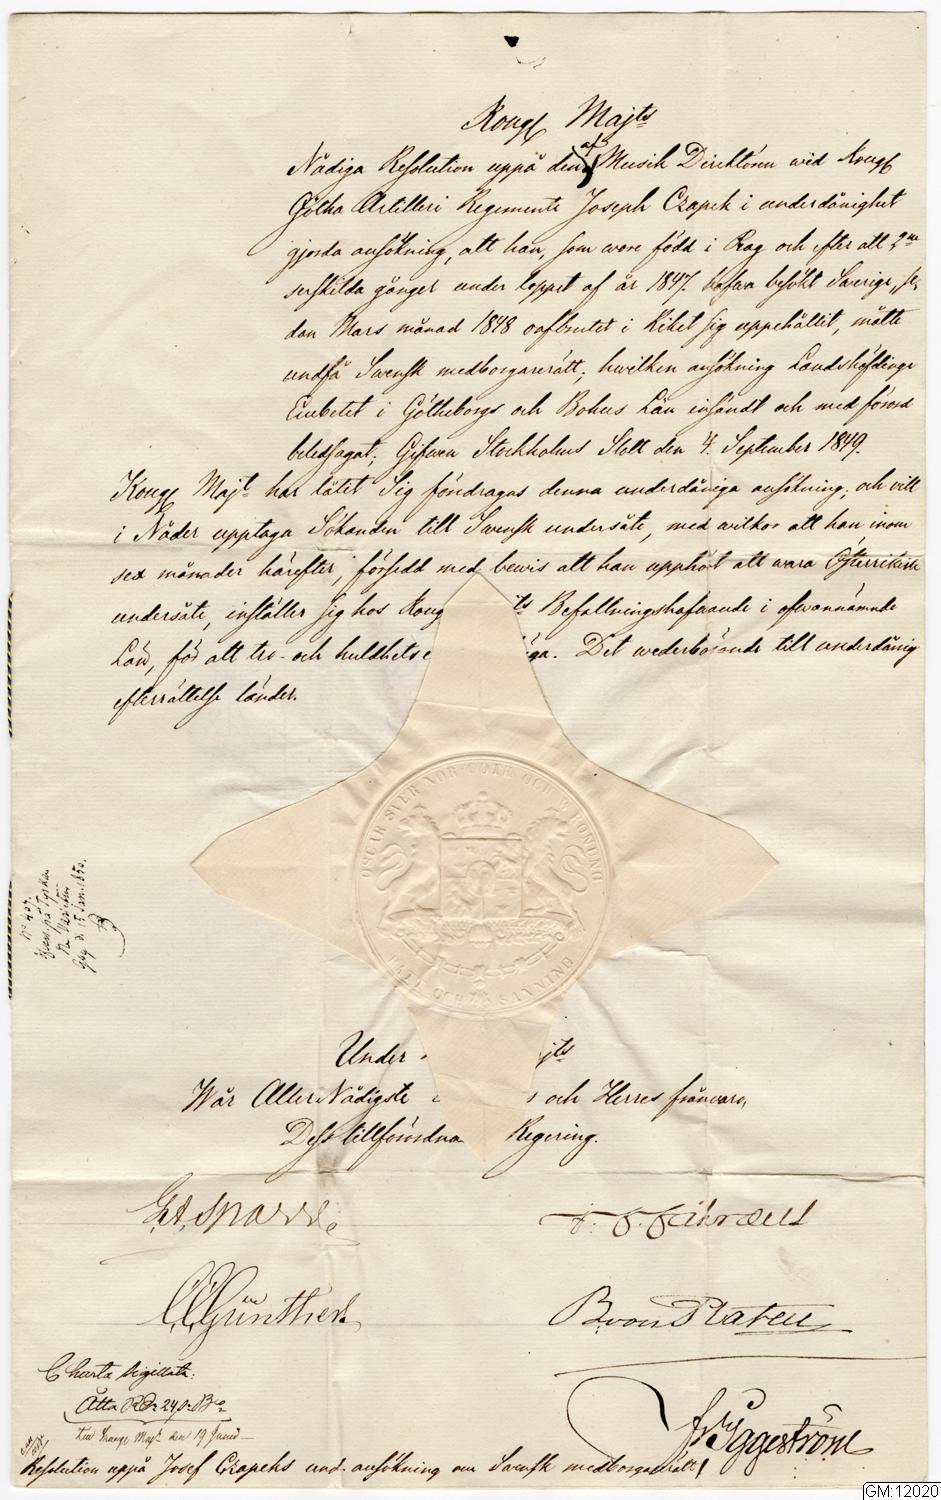 Kongl Majts
Nådiga Resolution uppå den af Musik Direktören wid Kongl
Götha Artilleri Regemente Joseph Czapek i underdånighet
gjorda ansökning, att han, som wore född i Prag och efter att 2ne
serskilda gånger under loppet af år 1847 hafwa besökt Swerige, se,
dan Mars månad 1848 oafbrutet i Riket sig uppehållit, måtte
undfå Swensk medborgarerätt; hwilken ansökning Landshöfdinge
Embetet i Götheborgs och Bohus Län insändt och med förord
beledsagat; Gifwen Stockholms Slott den 4. September 1849.
Kongl Majt har låtit Sig föredragas denna underdåniga ansökning; och vill
i Nåder upptaga Sökanden till Swensk undersåte, med wilkor att han inom
sex månader härefter, försedd med bewis att han upphört att wara Österrikisk
undersåte, inställer sig hos Kong ts Befallningshafwande i ofwannämnde
Län, för att tro- och huldhets e öga. Det wederbörande till underdånig
efterrättelse länder.
OSCAR SVER NOR GÖTH OCH V KONUNG
RÄTT OCH SANNING
No 407.
Gbg d. 15 Jan. 1850.
Under jts
Wår AllerNådigste och Herres frånvaro,
Dess tillförordna Regering.
G.A. Sparre
J. F. Fåhræus
C.C. Günther
B von Platen
Charta Sigillata:
Åtta RD 24 s. Bco
den 19 Junii
Fr Iggeström
Resolution uppå Josef Czapeks und. ansökning om Swensk medborgarerätt